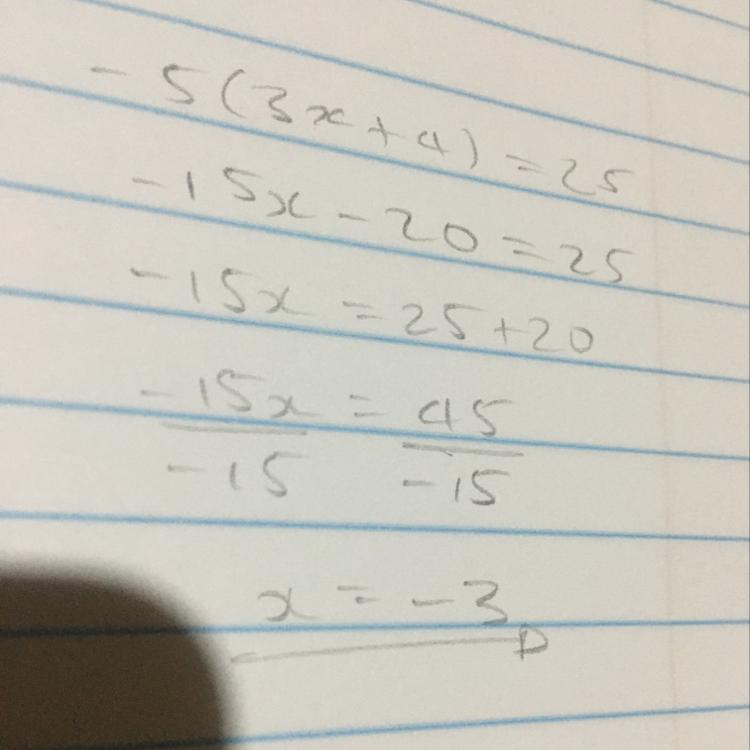 -5(3x+4)=25
-15x-20=25
-15x=25+20
-15x = 45
-15 -15
x = -3